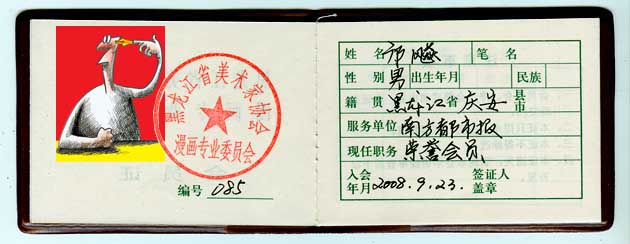 黑龙江省美术家协会
漫画专业委员会
编号 085
姓名 笔名
性别 男 出生年月 民族
籍贯 黑龙江省 庆安 县市
服务单位 南方都市报
现任职务 荣誉会员
入会年月 2008.9.23. 签证人盖章